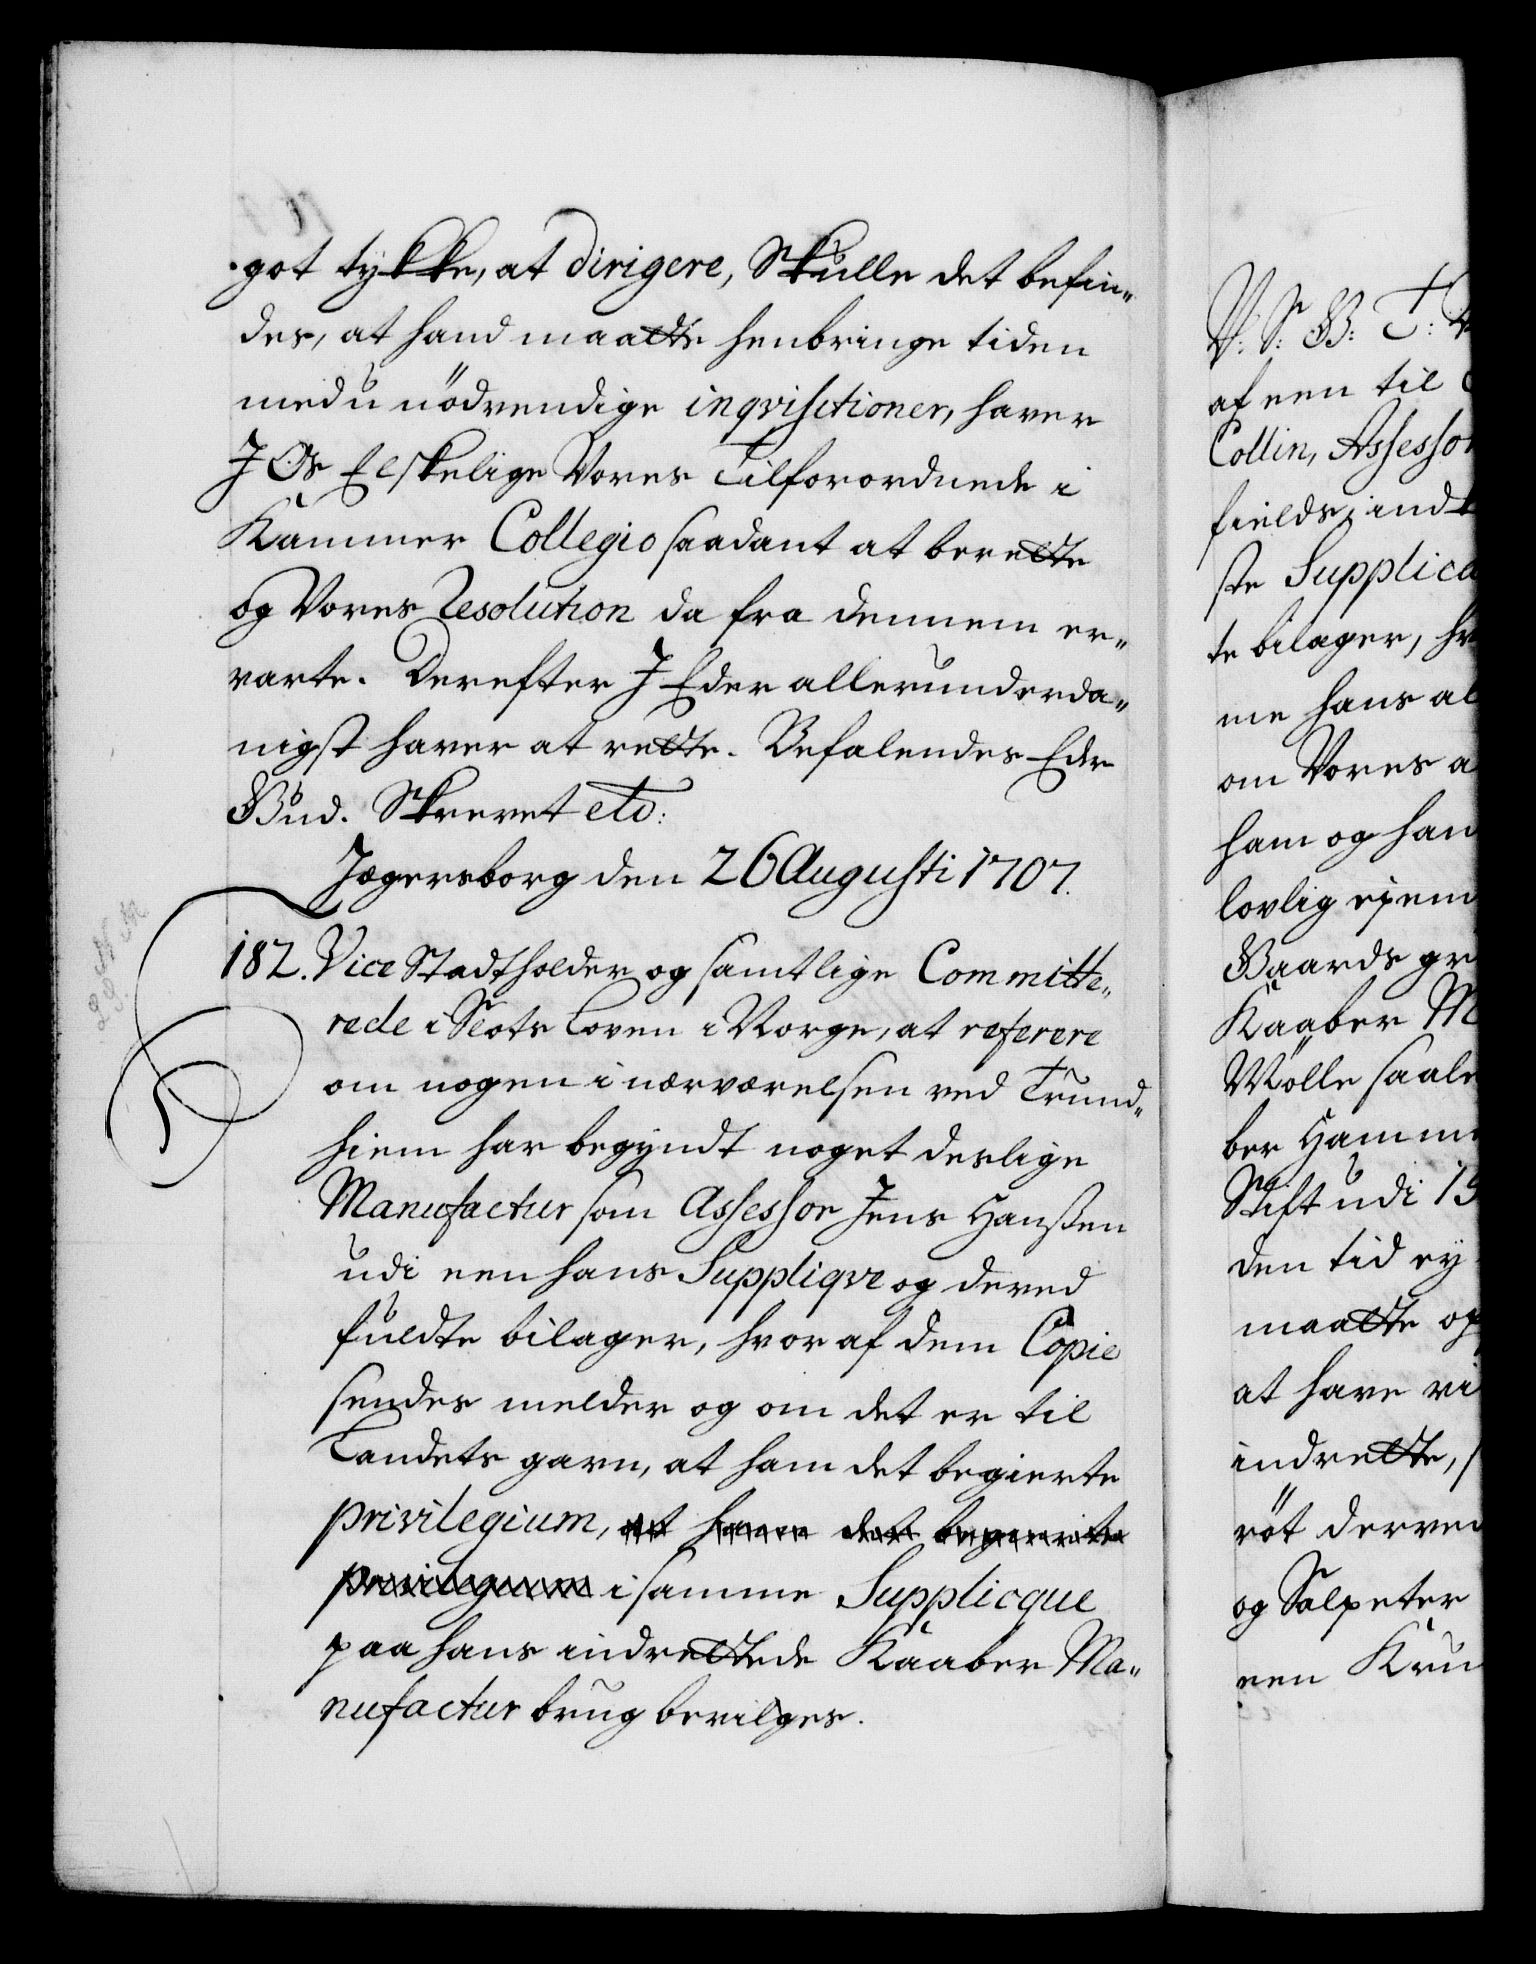 got tykke, at dirigere, Skulle det befin„
des, at hand maatte henbringe tiden
med unödvendige inqvisitioner, haver
J Os Elskelige Vores Tilforordnede i
Kammer Collegio saadant at berette
og Vores Resolution da fra dennem er„
varte. Derefter J Eder allerunderda„
nigst haver at rette. Befalendes Eder
Gud. Skrevet etc:
Jægersborg den 26 Augusti 1707.
182. Vice Stadtholder og samtlige Committe„
rede i Slots Loven i Norge, at referere
om nogen i nærværelsen ved Trund„
hiem har begyndt noget deslige
Manufactur som Assessor Jens Hanssen
udi een hans Suppliqve og derved
fuldte bilager, hvor af dem Copie
sendes melder og om det er til
Landets gavn, at ham det begierte
privilegium, at ham det begierte
privilegium i samme Supplicque
paa hans indrettede Kaaber Ma„
nufactur brug bevilges.
V. S. G: T:
af een til
Collin, Assessor
fields, ind
ste Supplica
te bilager, hv
me hans al
om Vores a
ham og han
lovlig ejem
Gaards gr
Kaaber M
Mölle saale
ber Hamme
Stift udi 19
den tid ey
maatte op
at have vi
indrette, s
röt derved
og Salpeter
een Kru